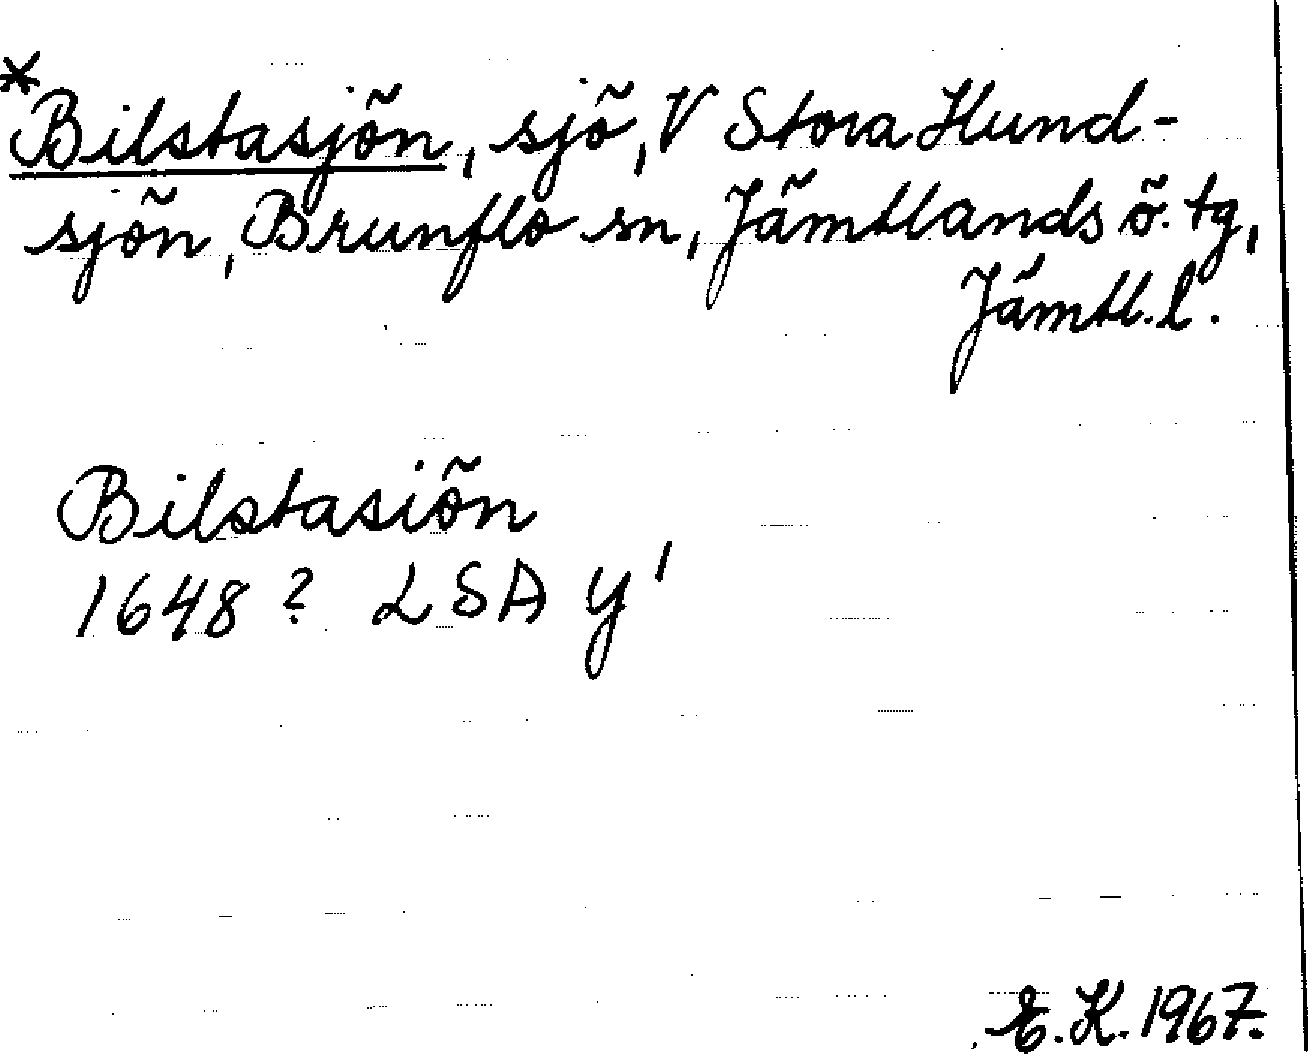 *Bilstasjön, sjö, V Stora Hund-
sjön, Brunflo sn, Jämtlands ö. tg,
Jämtl. l.
Bilstasiön
1648? LSA y'
E. K. 1967.